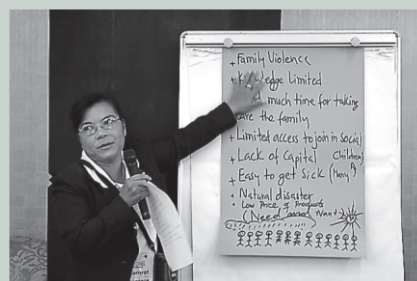 + Family Violence
+ Knowledge Limited
much time for taking
care the family
+ Limited access to join in Social
+ Lack of Capital
+ Easy to get Sick (Many
Children)
+ Natural disaster
• Low Price of Products
(Need and Want)